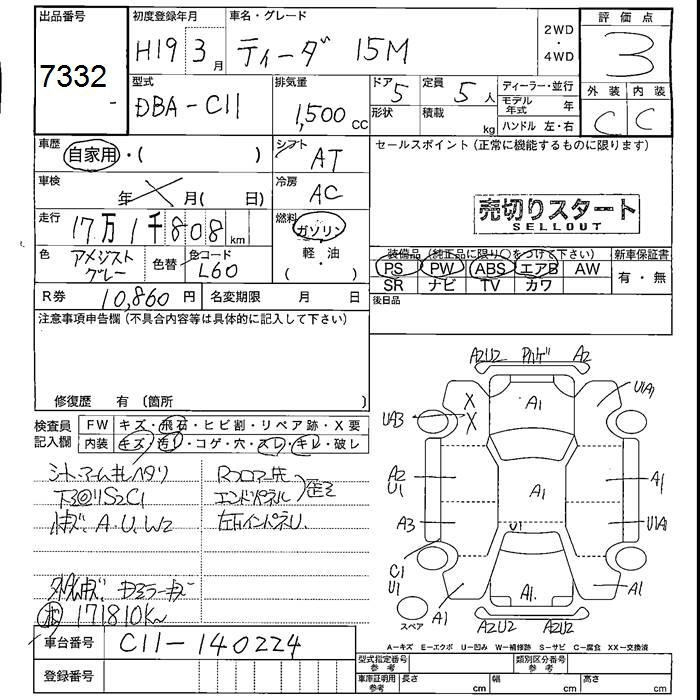 出品番号 初度登録年月 車名・グレード 2WD ・ 4WD 評価点
7332 H19 3月 ティーダ 15M 3
型式 排気量 ドア 定員 ディーラー・並行 外装 内装
DBA-C11 1,500cc 5 5人 モデル年式 年 C C
形状 積載 kg ハンドル 左・右
車歴 自家用・( ) シフト AT セールスポイント(正常に機能するものに限ります)
車検 年 月( 日) 冷房 AC
売切りスタート
SELLOUT
走行 17万1千808km 燃料 ガソリン
軽・油
( )
色 アメジストグレー 色替 色コード L60
装備品(純正品に限り○をつけて下さい) 新車保証書
PS PW ABS エアB AW 有・無
SR ナビ TV カワ
R券 10,860円 名変期限 月 日 後日品
注意事項申告欄(不具合内容等は具体的に記入して下さい)
修復歴 有(箇所 )
検査員記入欄 FW キズ・飛石・ヒビ割・リペア跡・X要
内装 キズ・汚レ・コゲ・穴・スレ・キレ・破レ
下回りS2C1
エンドパネル
A.U.W2
171810km
A2U2 A2
U1A1
X
X
UA3
A1
A2
U1
A1
A1
A3
U1
U1A1
C1
U1
A1
A1
A1
スペア
A2U2 A2U2
A-キズ E-エクボ U-凹み W-補修跡 S-サビ C-腐食 XX-交換済
車台番号 C11-140224
登録番号
型式指定番号参考 類別区分番号参考
車庫証明用参考 長さ cm 幅 cm 高さ cm